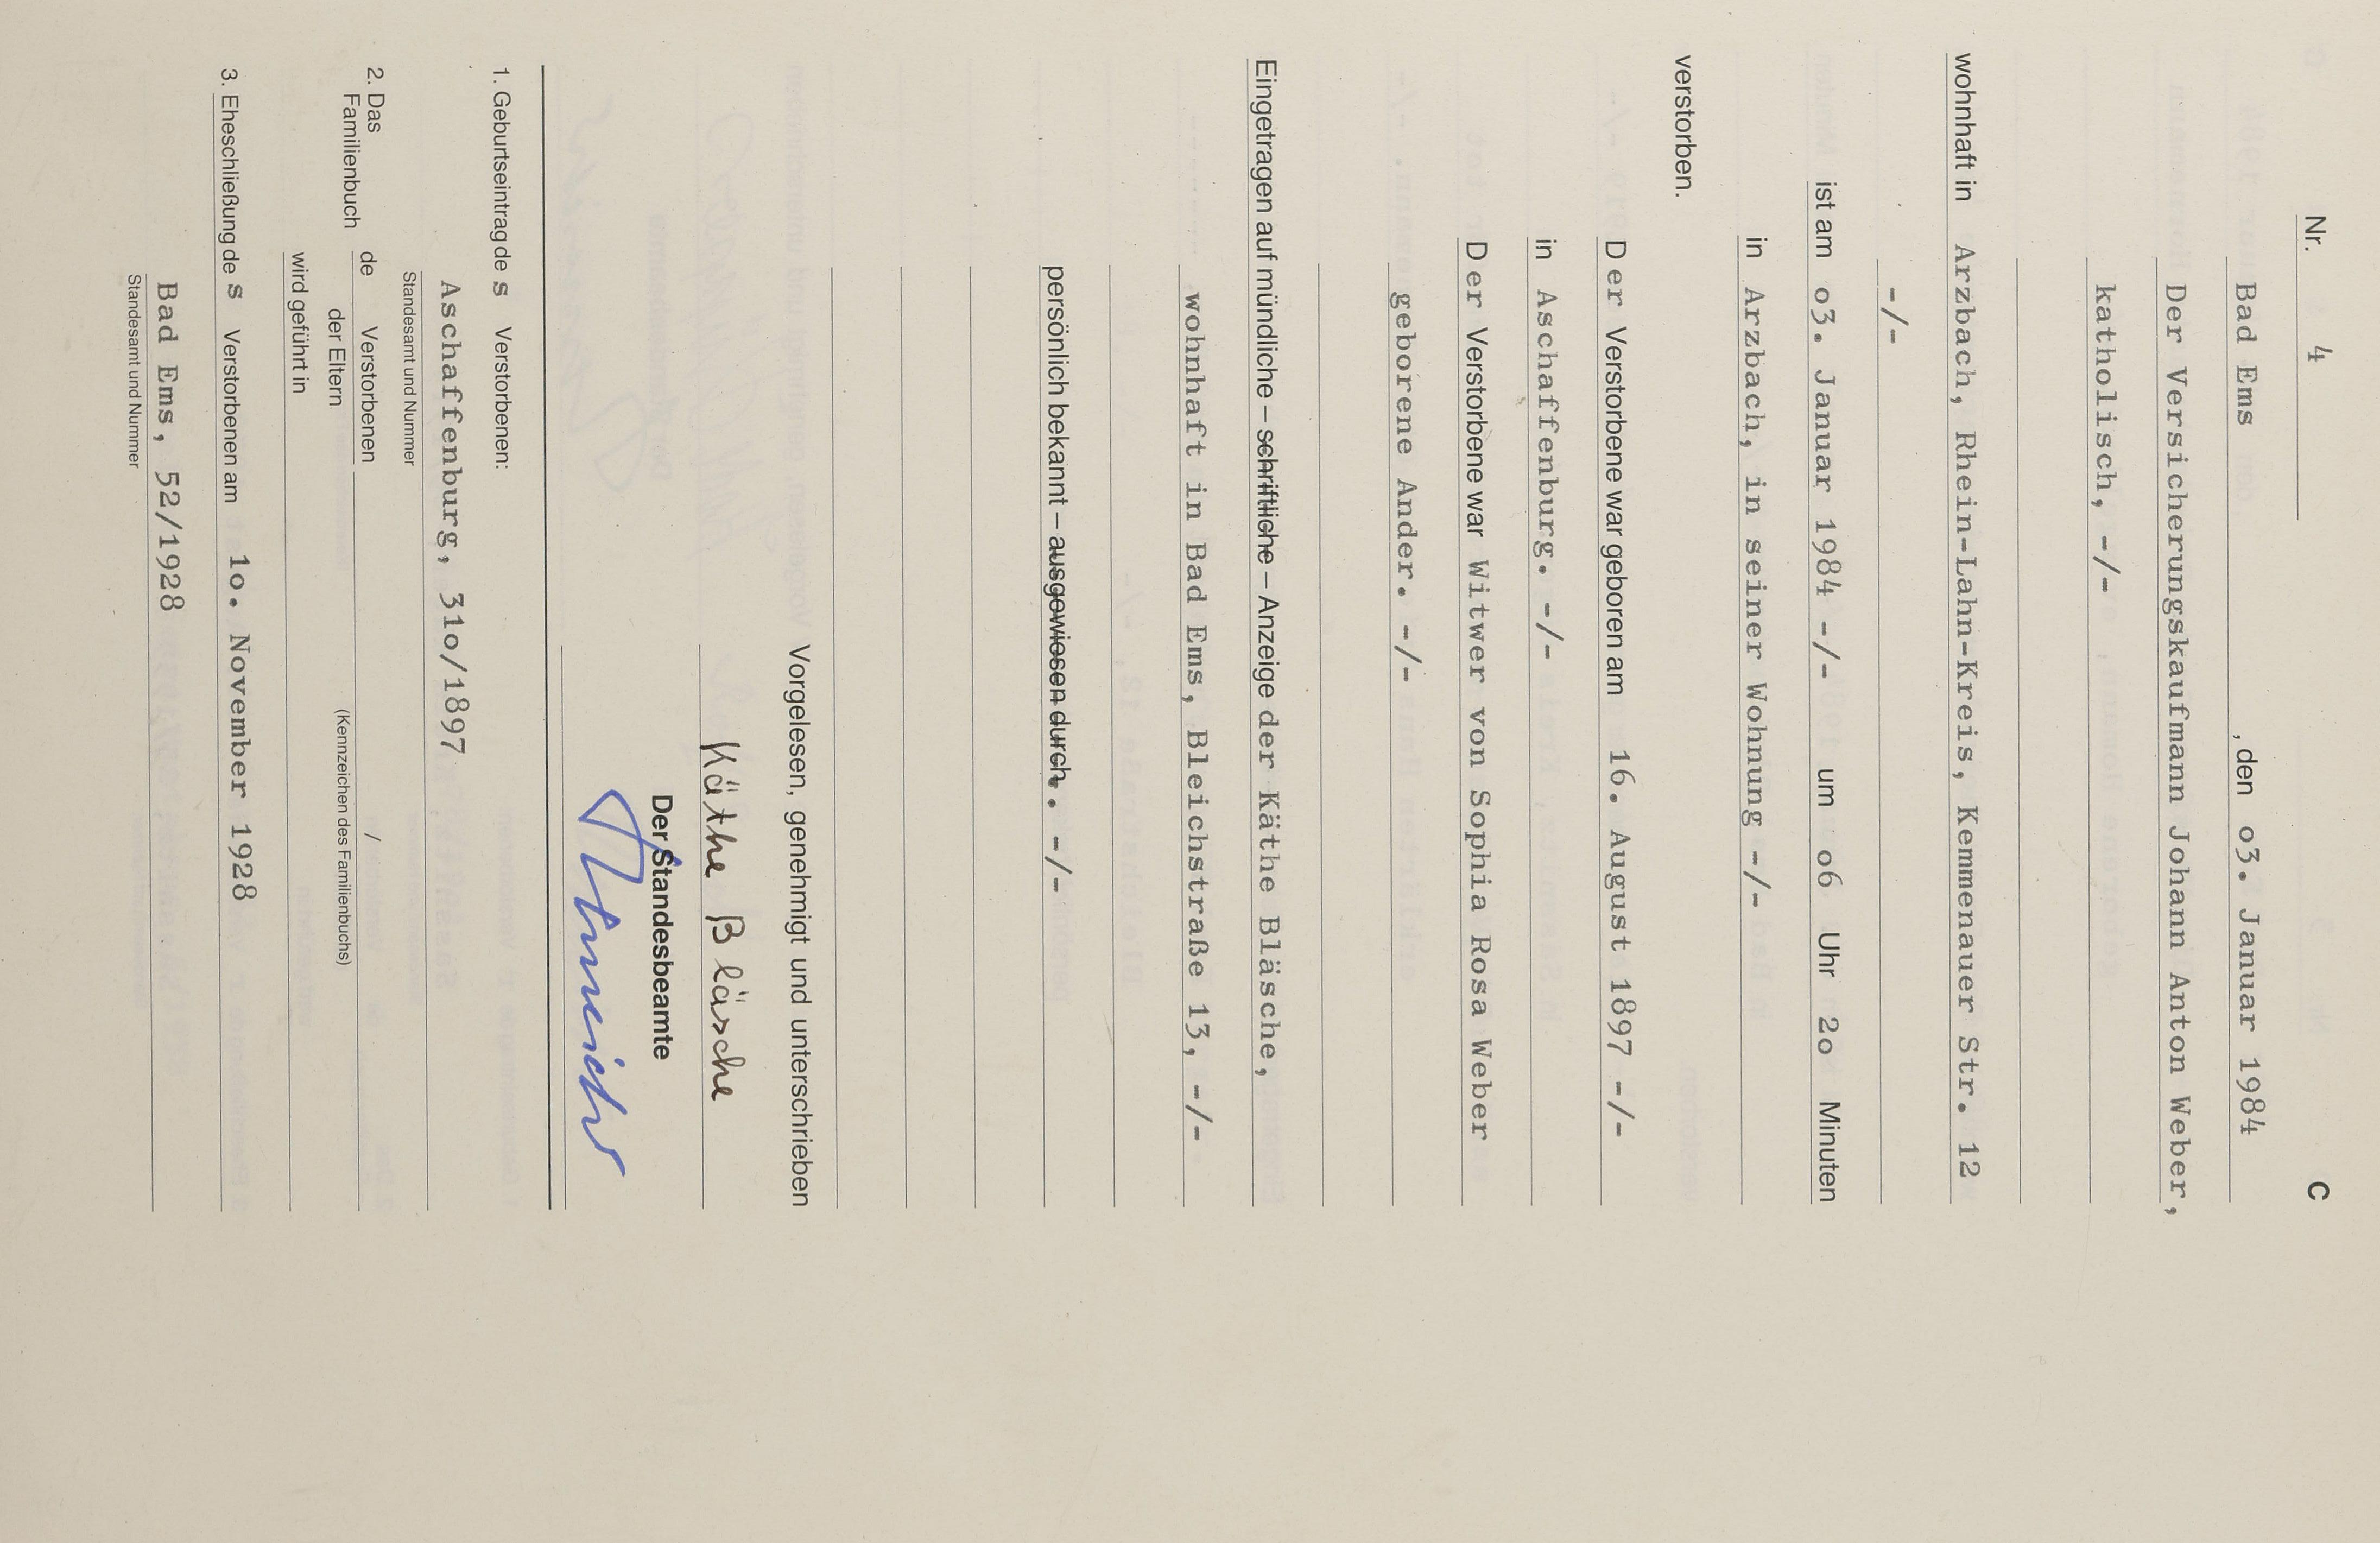 Nr. 4 C
Bad Ems , den o3. Januar 1984
Der Versicherungskaufmann Johann Anton Weber,
katholisch, -/-
wohnhaft in Arzbach, Rhein-Lahn-Kreis, Kemmenauer Str. 12
-/-
ist am o3. Januar 1984 -/- um o6 Uhr 2o Minuten
in Arzbach, in seiner Wohnung -/-
verstorben.
Der Verstorbene war geboren am 16. August 1897 -/-
in Aschaffenburg. -/-
Der Verstorbene war Witwer von Sophia Rosa Weber
geborene Ander. -/-
Eingetragen auf mündliche – schriftliche – Anzeige der Käthe Bläsche,
wohnhaft in Bad Ems, Bleichstraße 13, -/-
persönlich bekannt – ausgewiesen durch. . -/-
Vorgelesen, genehmigt und unterschrieben
Käthe Bläsche
Der Standesbeamte
1. Geburtseintrag des Verstorbenen:
Aschaffenburg, 31o/1897
Standesamt und Nummer
2. Das Familienbuch
de Verstorbenen /
der Eltern (Kennzeichen des Familienbuchs)
wird geführt in
3. Eheschließung des Verstorbenen am 1o. November 1928
Bad Ems, 52/1928
Standesamt und Nummer